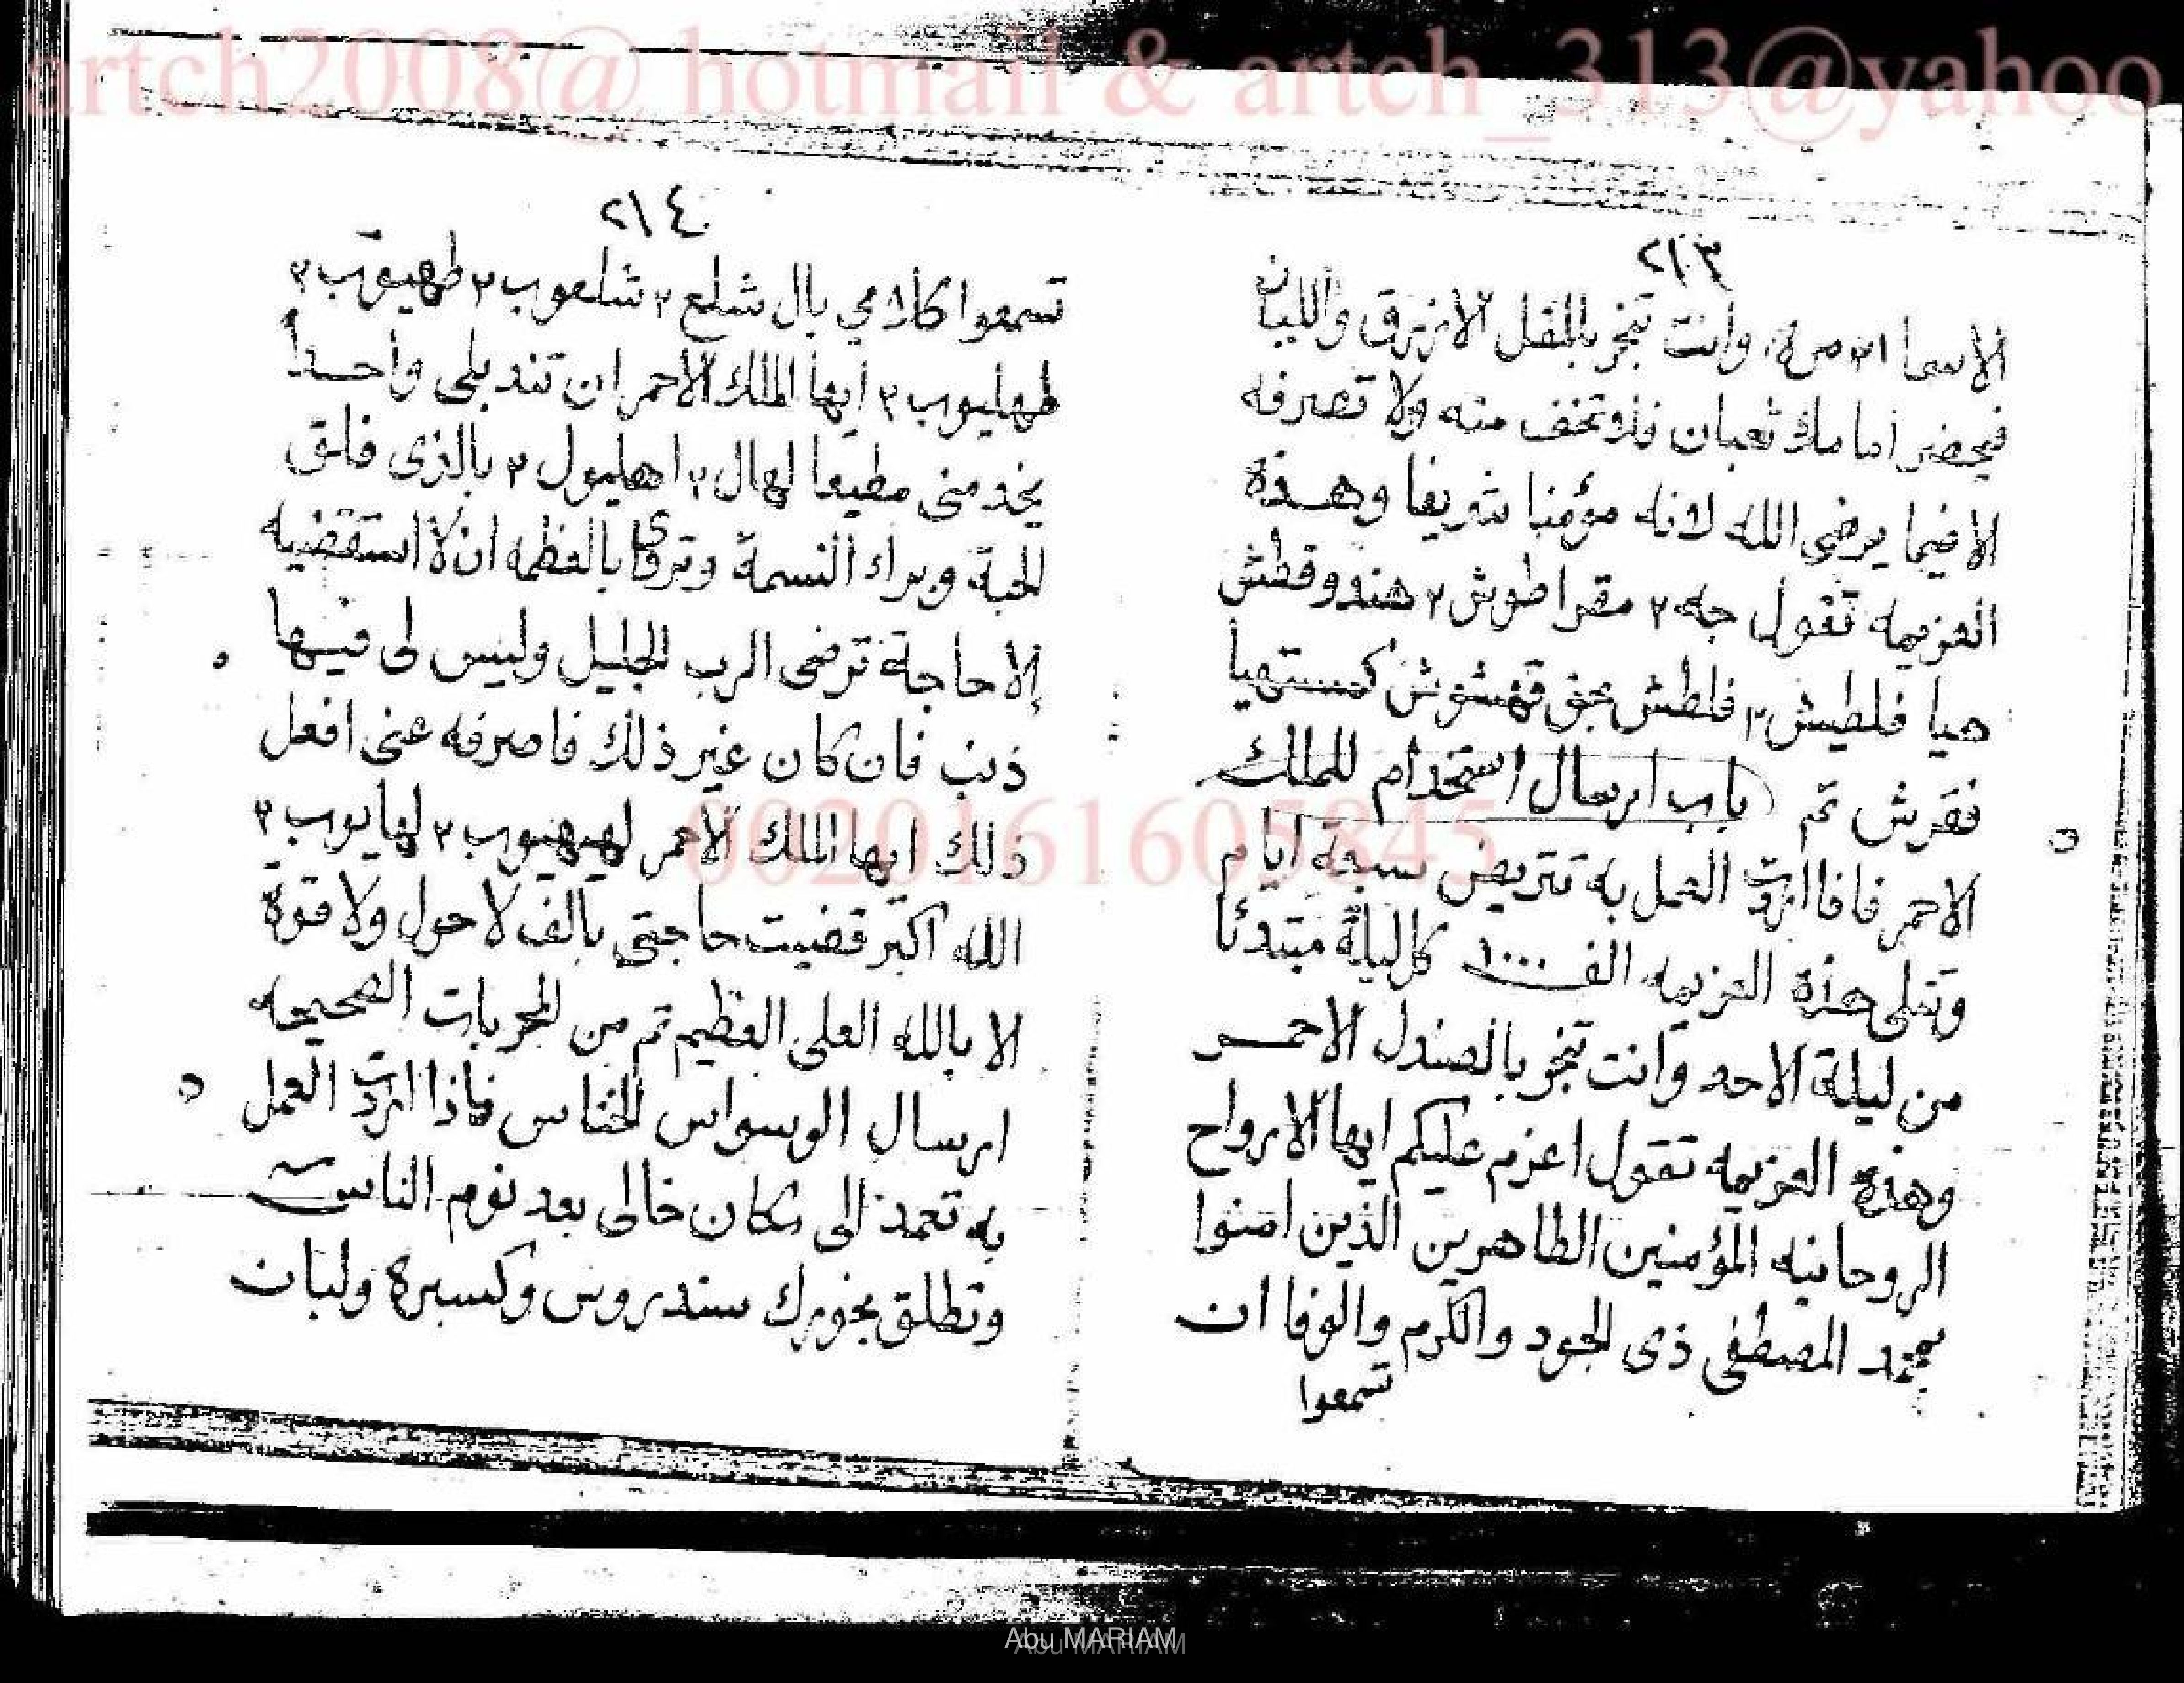 artch2008@ hotmail & artch_313@yahoo
٢١٣
الاسما ٢١ مرة، وانت تبخر بالمقل الازرق واللبان
فيحضر امامك ثعبان فلا تخف منه ولا تصرفه
الا فيما يرضى الله لانه مؤمنا شريفا وهذه
العزيمه تقول جه ٢ مقراطوش ٢ هندوقطش
هيا فلطيش ٢ فلطش قهشوش كمستهيا
فقرش تم باب ارسال استخدام للملك
الاحمر فاذا اردت العمل به تتريض سبعة ايام
وتتلى هذه العزيمه الف ١٠٠٠ كل ليلة مبتدئا
من ليلة الاحد وانت تبخر بالصندل الاحمر
وهذه العزيمه تقول اعزم عليكم ايها الارواح
الروحانيه المؤمنين الطاهرين الذين امنوا
بمحمد المصطفى ذى الجود والكرم والوفا ان
تسمعوا
٢١٤
تسمعوا كلامي بال شلع ٢ شلعوب ٢ طهيوب ٢
طهليوب ٢ ايها الملك الاحمر ان تند بلى واحداً
يخدمنى مطيعا لهال ٢ اهليول ٢ بالذى فلق
الحبة وبراء النسمة وتردى بالعظمه ان لا استقضيه
إلا حاجة ترضى الرب الجليل وليس لى فيها
ذنب فان كان غير ذلك فاصرفه عنى افعل
ذلك ايها الملك الاحمر لهيهيوب ٢ لهايوب ٢
الله اكبر قضيت حاجتى بالف لا حول ولا قوة
الا بالله العلى العظيم تم من المجربات الصحيحه
ارسال الوسواس الخناس فاذا اردت العمل
به تعمد الى مكان خالى بعد نوم الناس
وتطلق بخورك سندروس وكسبرة ولبان
0020161605845
Abu MARIAM